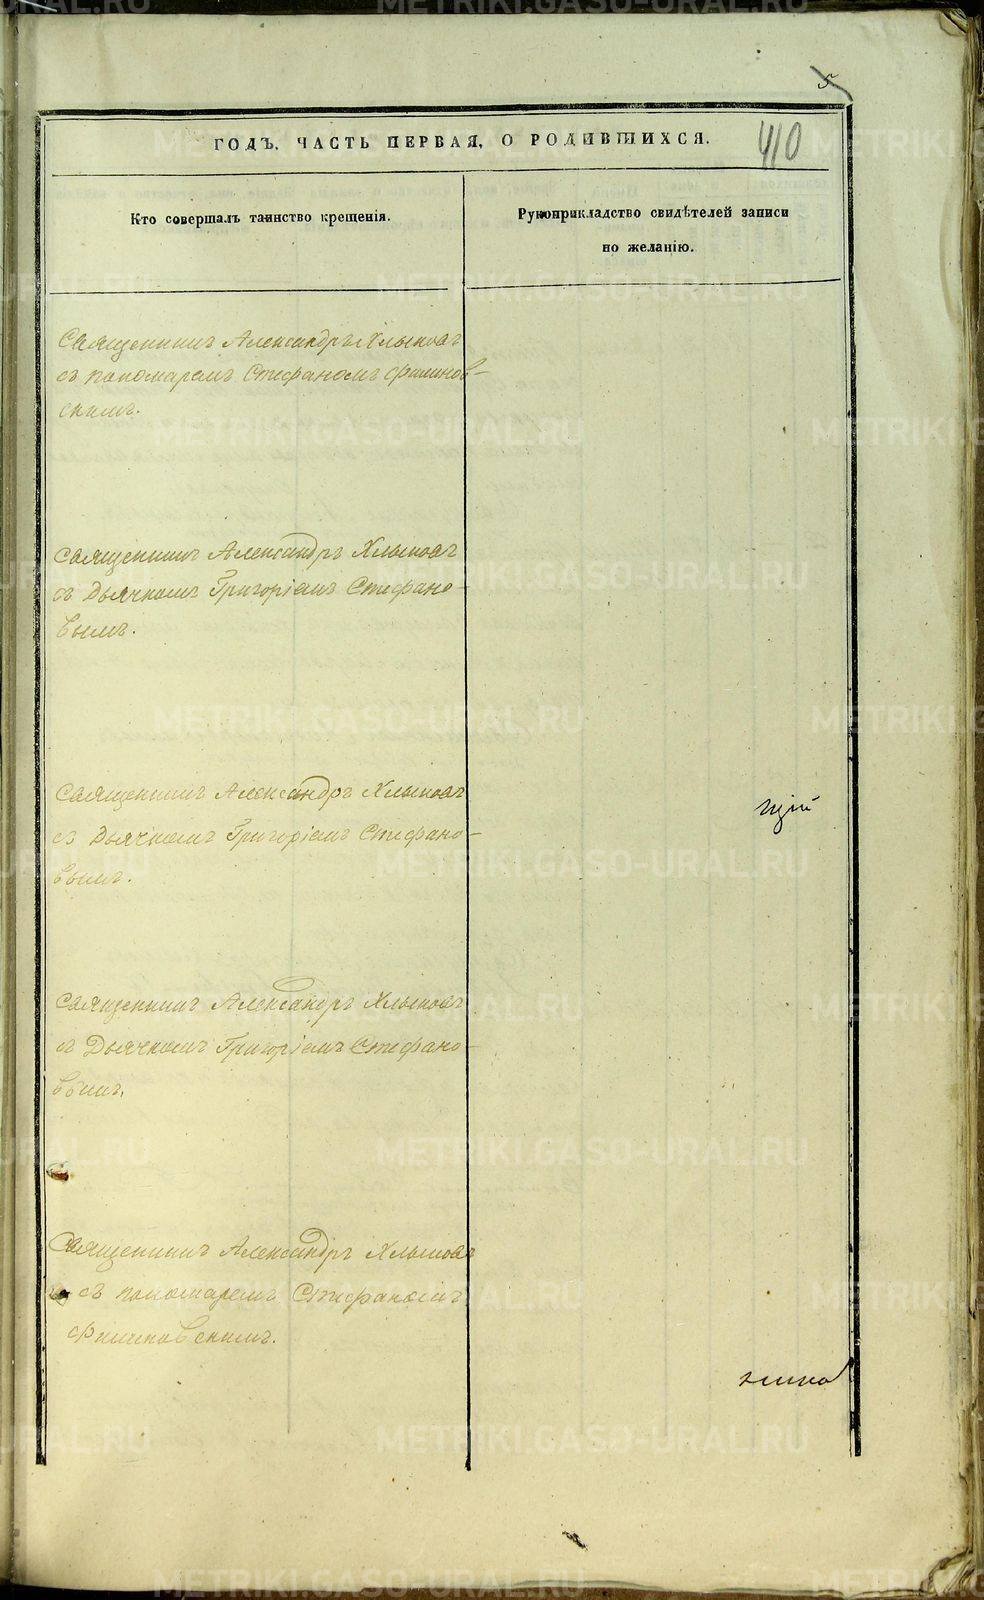 5
ГОДЪ. ЧАСТЬ ПЕРВАЯ, О РОДИВШИХСЯ.
410
Кто совершалъ таинство крещенія.
Рукоприкладство свидѣтелей записи
по желанію.
Священникъ Александръ Хлыновъ
съ пономаремъ Стефаномъ Филинов-
скимъ.
Священникъ Александръ Хлыновъ
съ Дьячкомъ Григоріемъ Стефано-
вымъ.
Священникъ Александръ Хлыновъ
съ Дьячкомъ Григоріемъ Стефано-
вымъ.
Священникъ Александръ Хлыновъ
съ Дьячкомъ Григоріемъ Стефано-
вымъ.
Священникъ Александръ Хлыновъ
съ пономаремъ Стефаномъ
Филиновскимъ.
METRIKI.GASO-URAL.RU